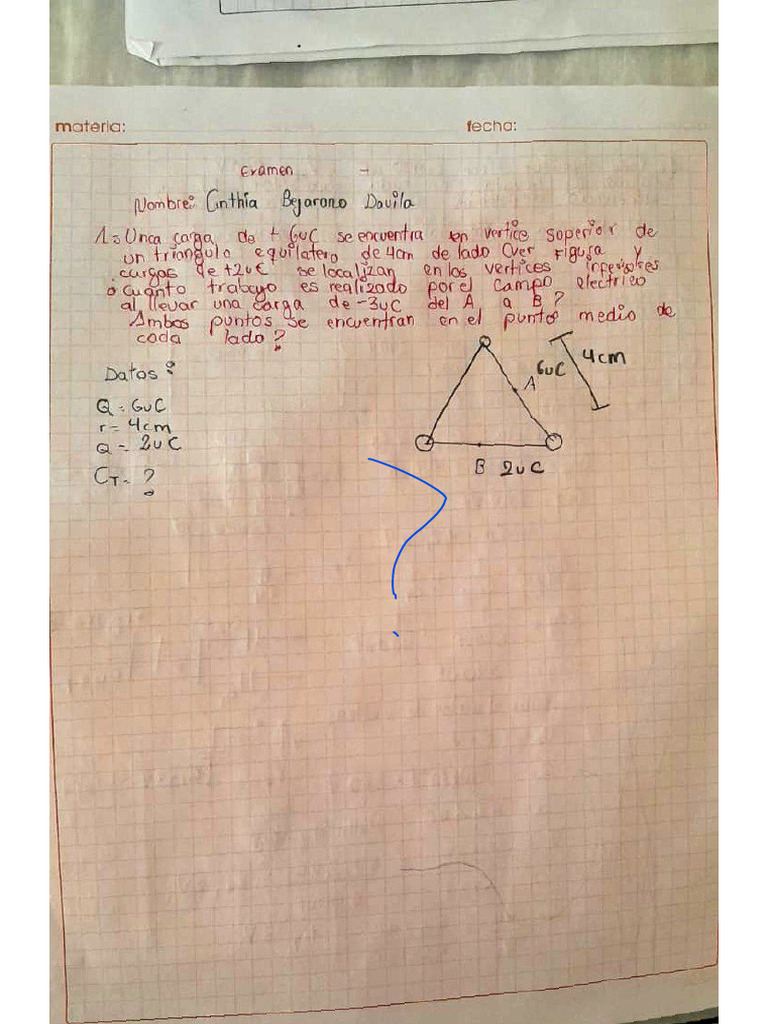 materia: fecha:
Examen
Nombre: Cinthia Bejarano Davila
1= Unca carga de + 6uC se encuentra en vertice superior de
un triangulo equilatero de 4cm de lado (ver figura y
cargas de +2uC se localizan en los vertices inferiores
¿cuanto trabajo es realizado por el campo electrico
al llevar una carga de -3uC del A a B?
Ambos puntos se encuentran en el puntos medio de
cada lado?
Datos:
Q = 6uC
r = 4cm
Q = 2uC
CT = ?
6uC
4cm
A
B 2uC
?